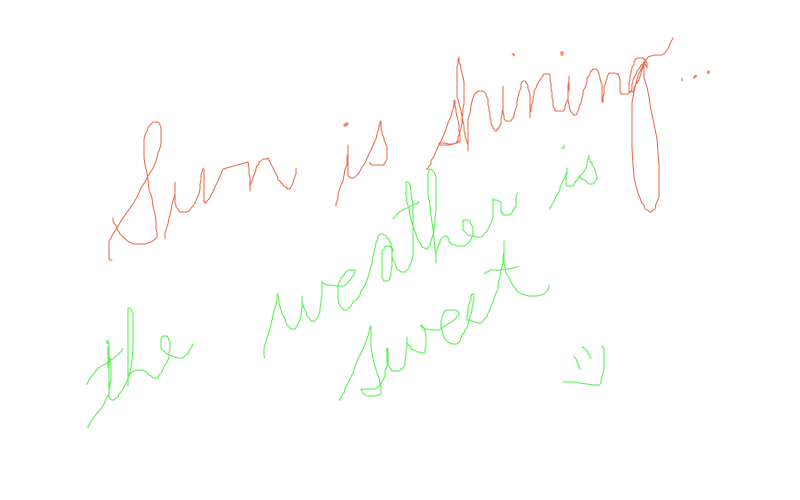 Sun is shining...
the weather is
sweet